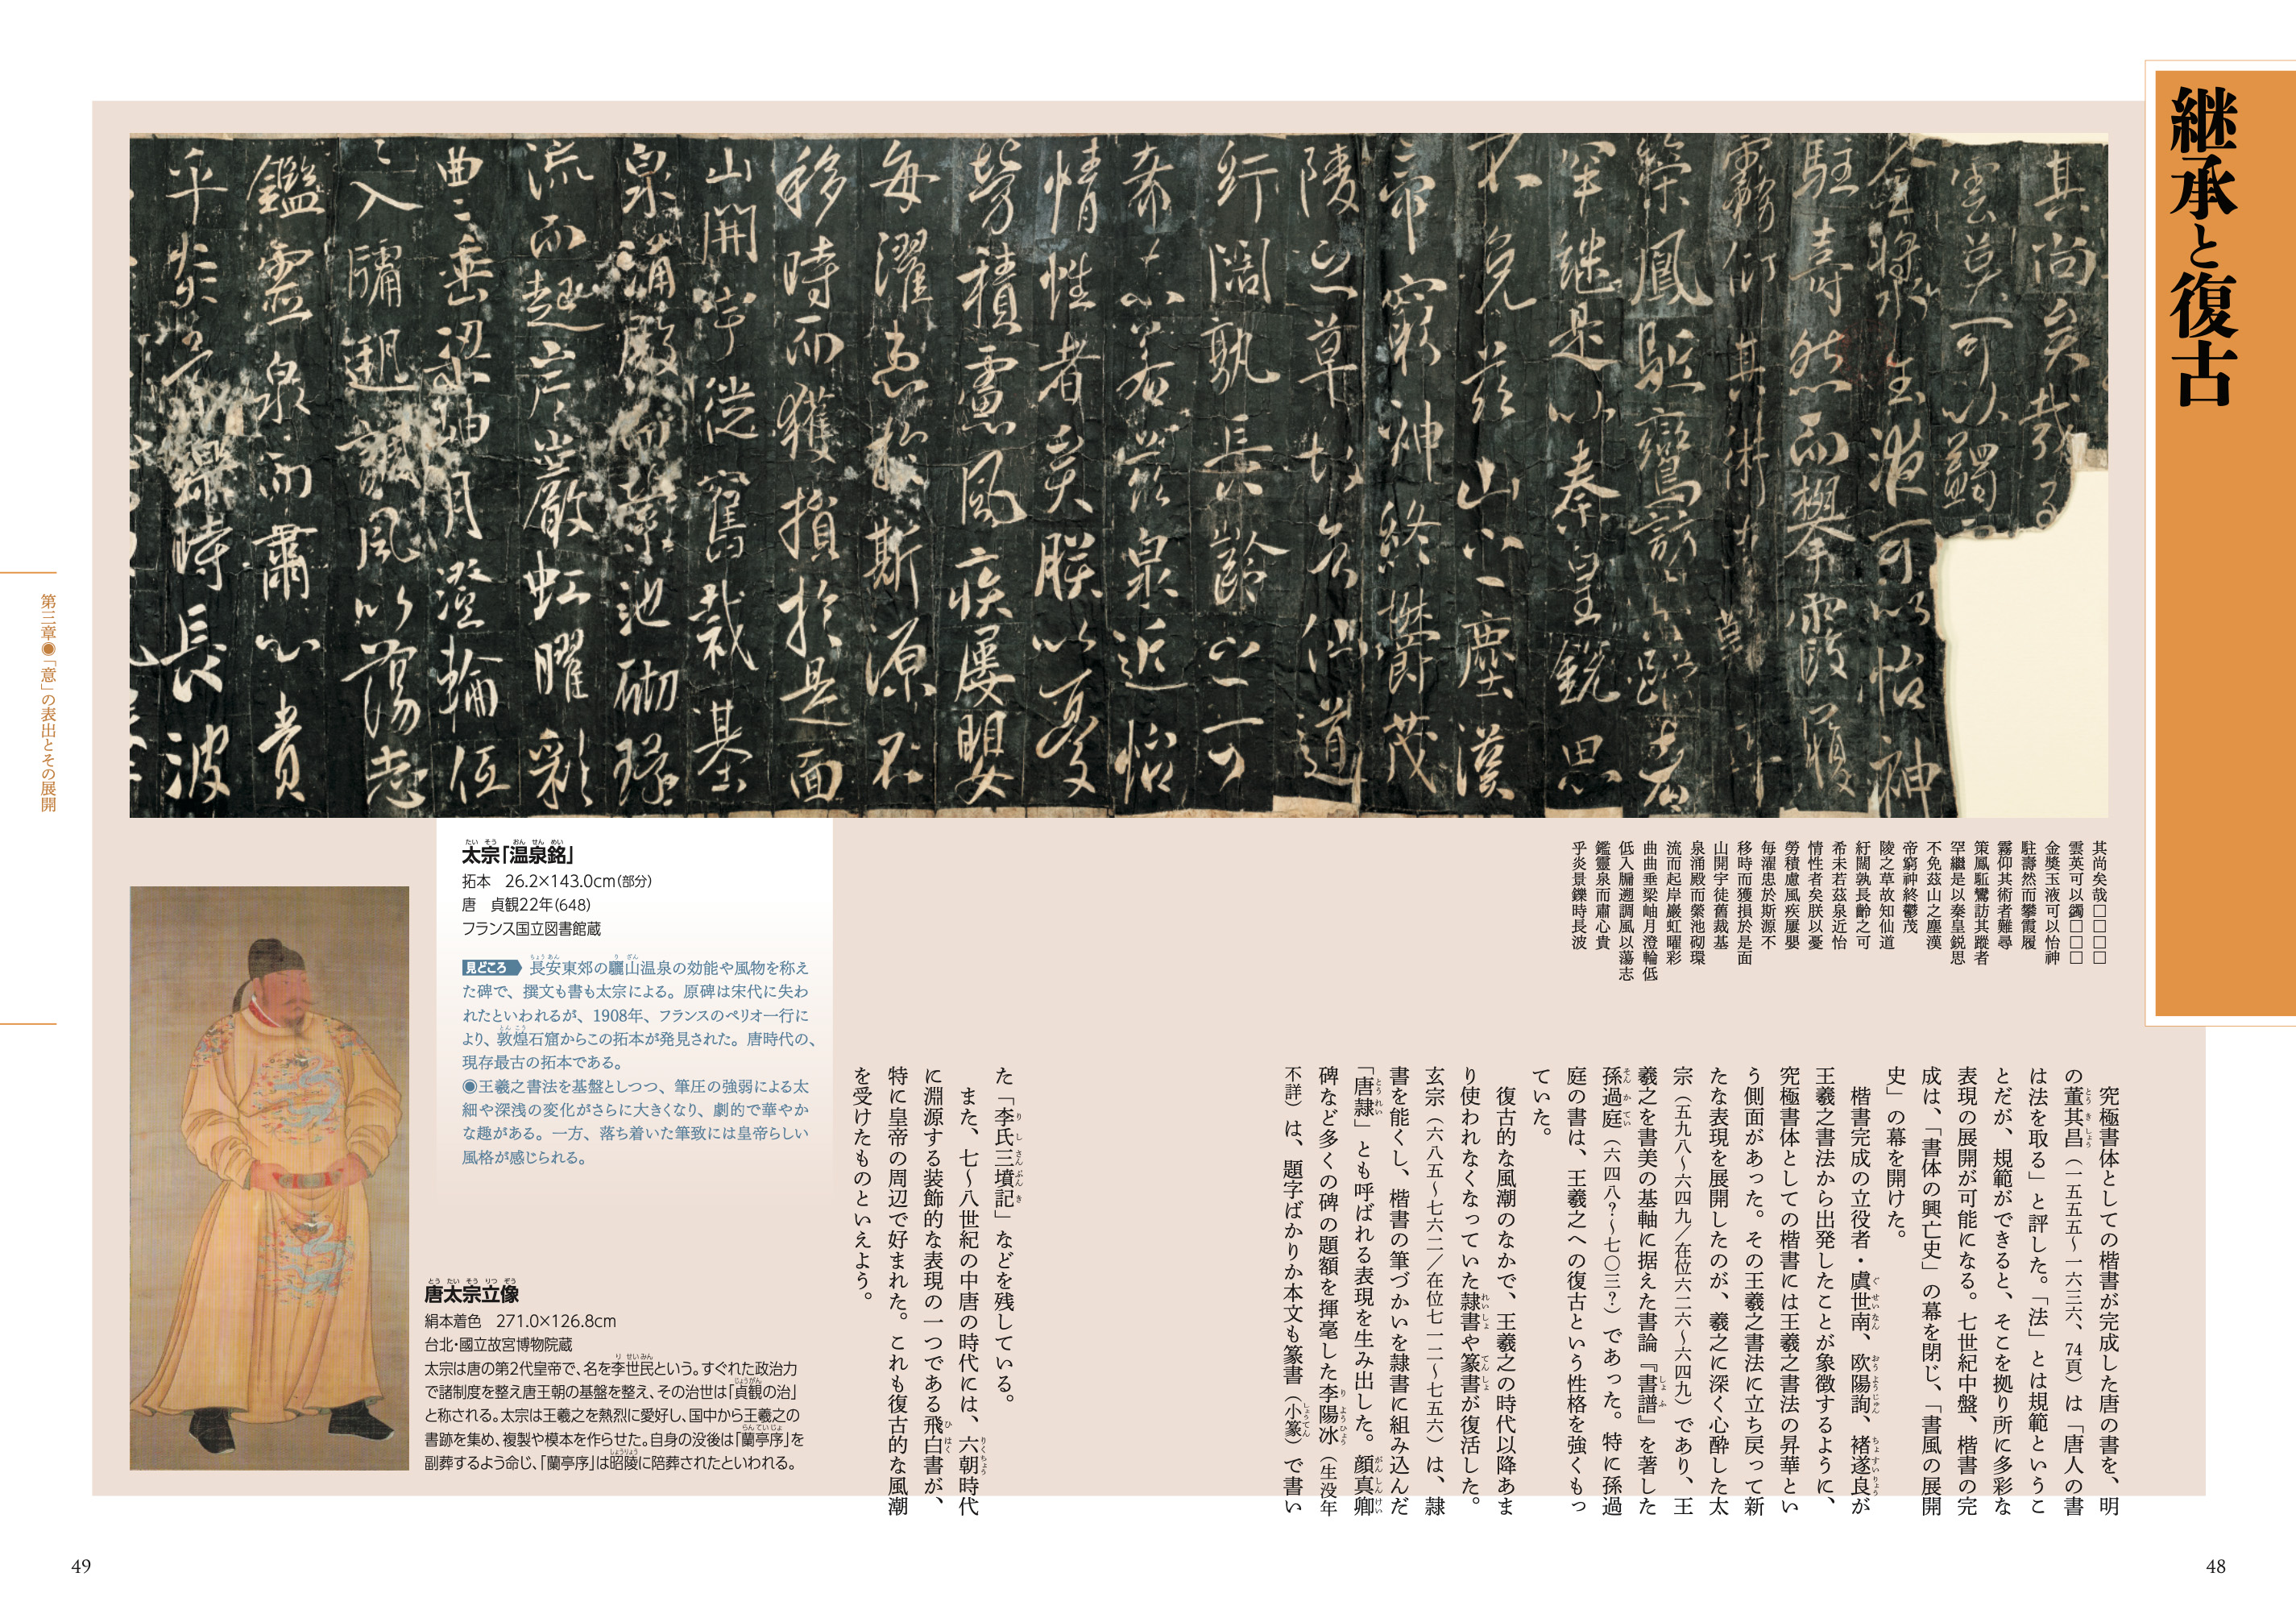 継承と復古
其尚矣哉□□□□
雲英可以蠲□□□
金奬玉液可以怡神
駐壽然而攀霞履
霧仰其術者難尋
策鳳駈鸞訪其蹤者
罕繼是以秦皇鋭思
不免茲山之塵漢
帝窮神終鬱茂
陵之草故知仙道
紆闊孰長齡之可
希未若茲泉近怡
情性者矣朕以憂
勞積慮風疾屢嬰
毎濯患於斯源不
移時而獲損於是面
山開宇徒舊裁基
泉涌殿而縈池砌環
流而起岸巖虹曜彩
曲曲垂梁岫月澄輪低
低入牖遡調風以蕩志
鑑靈泉而肅心貴
乎炎景鑠時長波
究極書体としての楷書が完成した唐の書を、明
の董其昌（一五五五〜一六三六、74頁）は「唐人の書
は法を取る」と評した。「法」とは規範というこ
とだが、規範ができると、そこを拠り所に多彩な
表現の展開が可能になる。七世紀中盤、楷書の完
成は、「書体の興亡史」の幕を閉じ、「書風の展開
史」の幕を開けた。
楷書完成の立役者・虞世南、欧陽詢、褚遂良が
王羲之書法から出発したことが象徴するように、
究極書体としての楷書には王羲之書法の昇華とい
う側面があった。その王羲之書法に立ち戻って新
たな表現を展開したのが、羲之に深く心酔した太
宗（五九八〜六四九／在位六二六〜六四九）であり、王
羲之を書美の基軸に据えた書論『書譜』を著した
孫過庭（六四八？〜七〇三？）であった。特に孫過
庭の書は、王羲之への復古という性格を強くもっ
ていた。
復古的な風潮のなかで、王羲之の時代以降あま
り使われなくなっていた隷書や篆書が復活した。
玄宗（六八五〜七六二／在位七一二〜七五六）は、隷
書を能くし、楷書の筆づかいを隷書に組み込んだ
「唐隷」とも呼ばれる表現を生み出した。顔真卿
碑など多くの碑の題額を揮毫した李陽冰（生没年
不詳）は、題字ばかりか本文も篆書（小篆）で書い
た「李氏三墳記」などを残している。
また、七〜八世紀の中唐の時代には、六朝時代
に淵源する装飾的な表現の一つである飛白書が、
特に皇帝の周辺で好まれた。これも復古的な風潮
を受けたものといえよう。
太宗「温泉銘」
拓本　26.2×143.0cm（部分）
唐　貞観22年（648）
フランス国立図書館蔵
見どころ 長安東郊の驪山温泉の効能や風物を称え
た碑で、撰文も書も太宗による。原碑は宋代に失わ
れたといわれるが、1908年、フランスのペリオ一行に
より、敦煌石窟からこの拓本が発見された。唐時代の、
現存最古の拓本である。
◉王羲之書法を基盤としつつ、筆圧の強弱による太
細や深浅の変化がさらに大きくなり、劇的で華やか
な趣がある。一方、落ち着いた筆致には皇帝らしい
風格が感じられる。
唐太宗立像
絹本着色　271.0×126.8cm
台北・國立故宮博物院蔵
太宗は唐の第2代皇帝で、名を李世民という。すぐれた政治力
で諸制度を整え唐王朝の基盤を整え、その治世は「貞観の治」
と称される。太宗は王羲之を熱烈に愛好し、国中から王羲之の
書跡を集め、複製や模本を作らせた。自身の没後は「蘭亭序」を
副葬するよう命じ、「蘭亭序」は昭陵に陪葬されたといわれる。
第三章◉「意」の表出とその展開
49
48